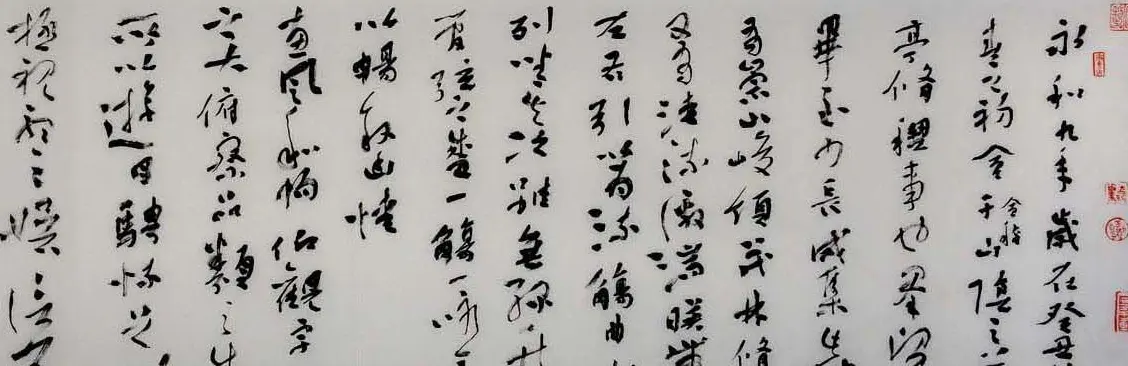 永和九年歲在癸丑
春之初會于會稽山陰之
亭脩稧事也羣賢
畢至少長咸集此
有崇山峻領茂林脩
又有清流激湍暎帶
左右引以為流觴曲
列坐其次雖無絲竹
管弦之盛一觴一詠亦
以暢敘幽情
惠風和暢仰觀宇
之大俯察品類之盛
所以遊目騁懷足
極視聽之娛信可